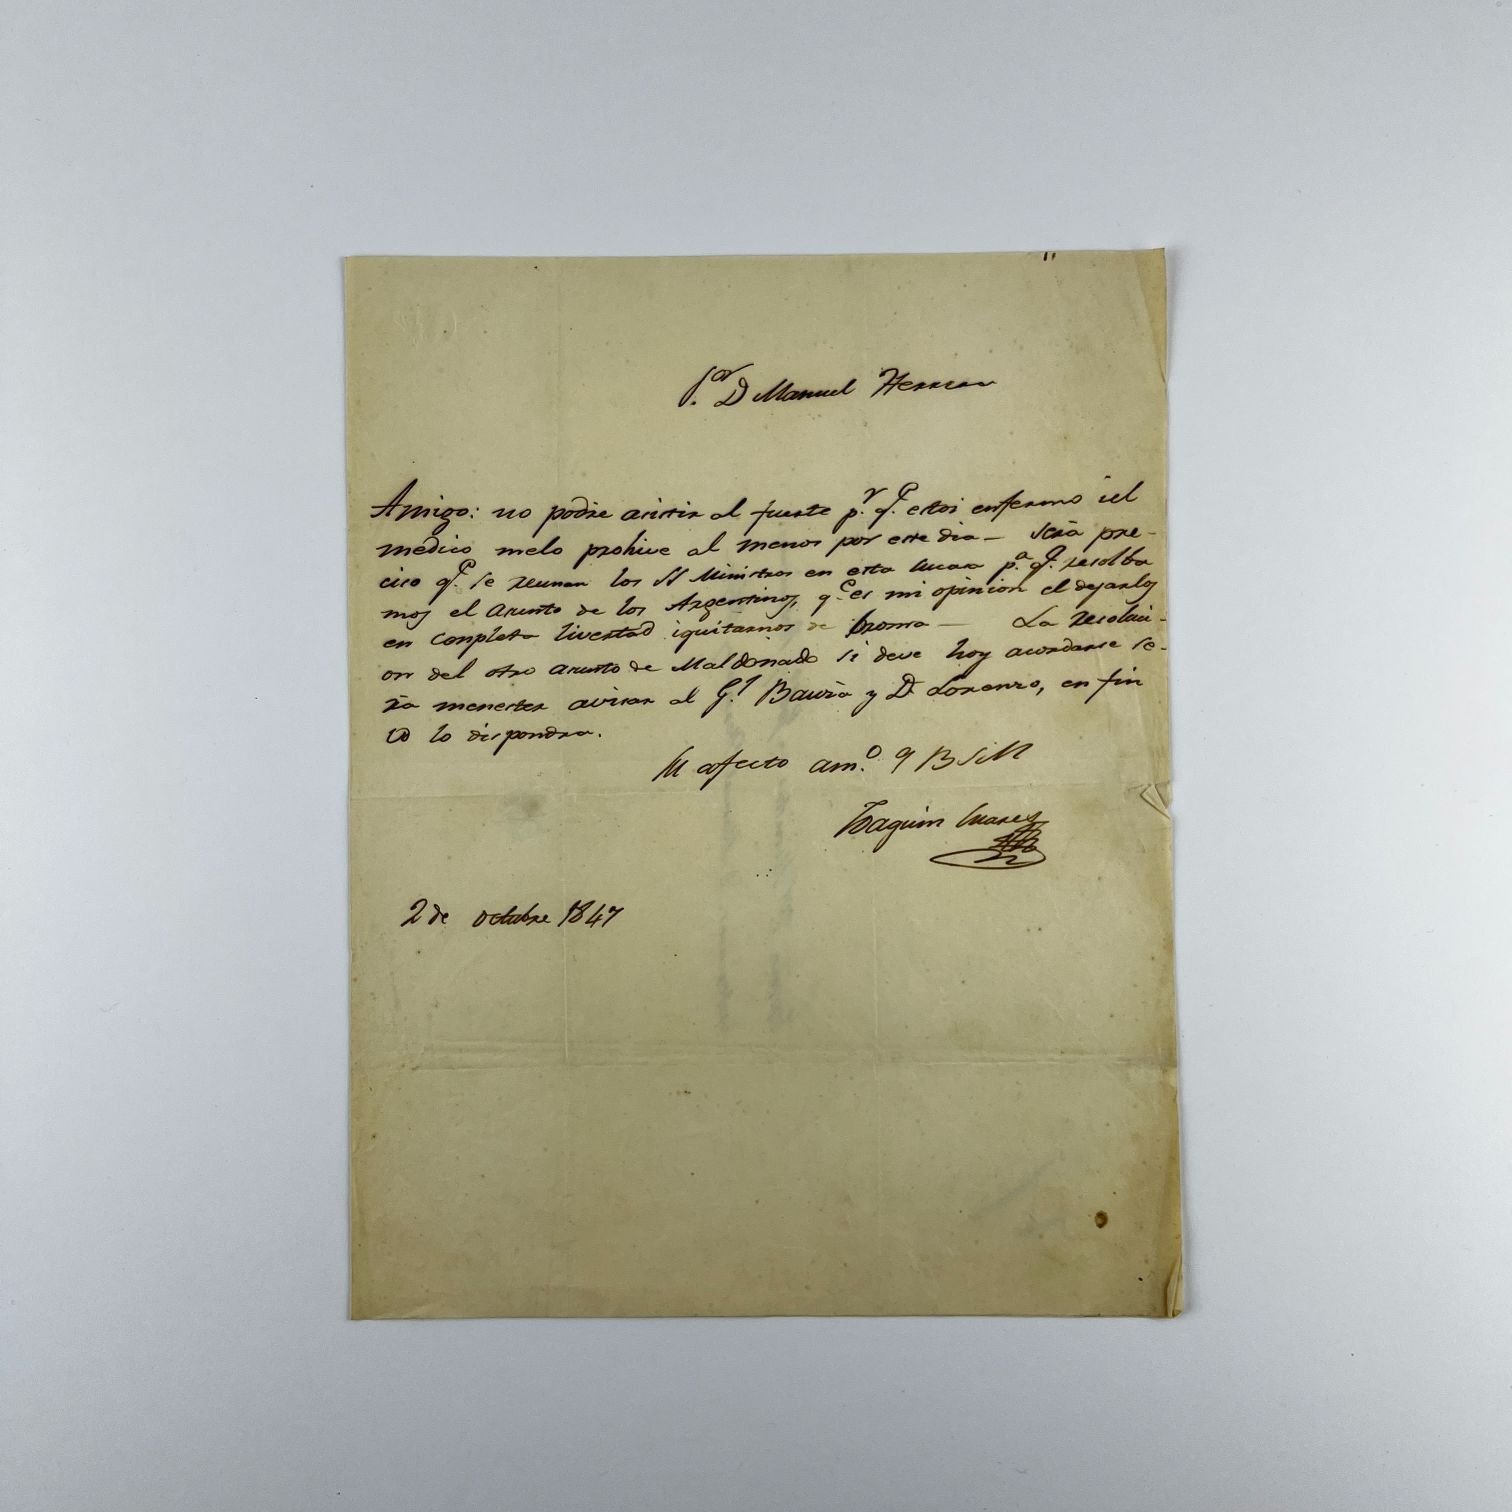 Sor. D Manuel Herrera
Amigo: no podre asistir al fuerte pr. qe. estoi enfermo iel
medico melo prohive al menos por este dia — será pre-
ciso qe. se reunan los SS Ministros en esta su casa pa. qe. resolba
mos el asunto de los Argentinos, qe es mi opinion el dejarlos
en conpleta livertad iquitarnos de broma — La resoluci-
on del otro asunto de Maldonado si deve hoy acordarse se-
rá menester avisar al Gl Bauzá y D. Lorenzo, en fin
VD lo dispondra.
Su afecto amo. q B S M
Joaquin Suarez
2 de octubre 1847